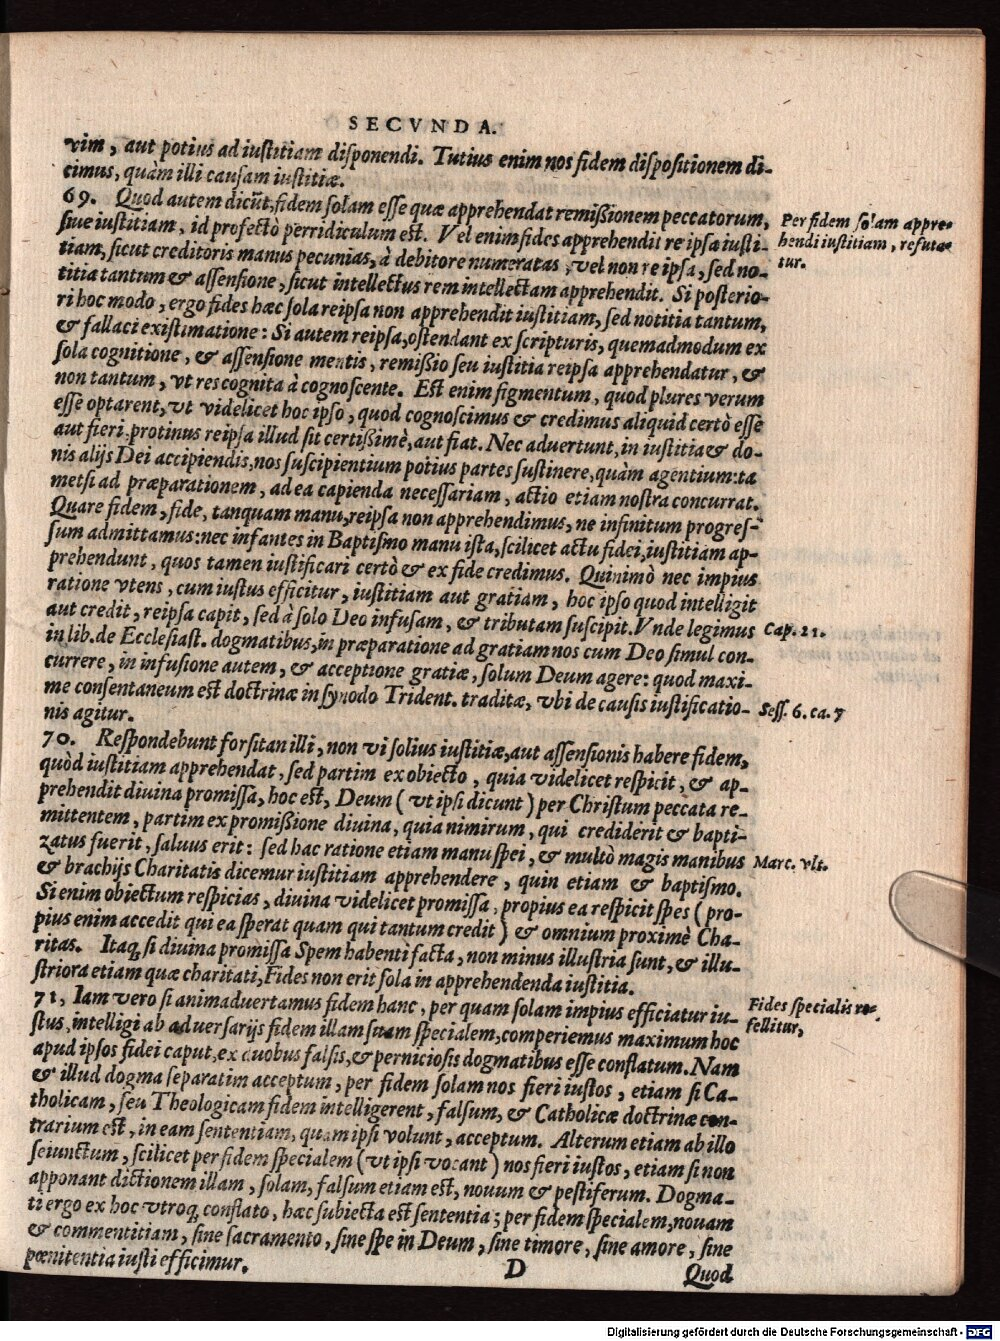 SECVNDA.
vim, aut potius ad iustitiam disponendi. Tutius enim nos fidem dispositionem di-
cimus, quàm illi causam iustitiæ.
69. Quod autem dicũt, fidem solam esse quæ apprehendat remißionem peccatorum,
siue iustitiam, id profectò perridiculum est. Vel enim fides apprehendit re ipsa iusti-
tiam, sicut creditoris manus pecunias, à debitore numeratas, vel non re ipsa, sed no-
titia tantum & assensione, sicut intellectus rem intellectam apprehendit. Si posterio-
ri hoc modo, ergo fides hæc sola reipsa non apprehendit iustitiam, sed notitia tantum,
& fallaci existimatione: Si autem reipsa, ostendant ex scripturis, quemadmodum ex
sola cognitione, & assensione mentis, remißio seu iustitia reipsa apprehendatur, &
non tantum, vt res cognita à cognoscente. Est enim figmentum, quod plures verum
esse optarent, vt videlicet hoc ipso, quod cognoscimus & credimus aliquid certò esse
aut fieri, protinus reipsa illud sit certißimè, aut fiat. Nec aduertunt, in iustitia & do-
nis alijs Dei accipiendis, nos suscipientium potius partes sustinere, quàm agentium: ta
metsi ad præparationem, ad ea capienda necessariam, actio etiam nostra concurrat.
Quare fidem, fide, tanquam manu, reipsa non apprehendimus, ne infinitum progres-
sum admittamus: nec infantes in Baptismo manu ista, scilicet actu fidei, iustitiam ap-
prehendunt, quos tamen iustificari certò & ex fide credimus. Quinimò nec impius
ratione vtens, cum iustus efficitur, iustitiam aut gratiam, hoc ipso quod intelligit
aut credit, reipsa capit, sed à solo Deo infusam, & tributam suscipit. Vnde legimus
in lib. de Ecclesiast. dogmatibus, in præparatione ad gratiam nos cum Deo simul con-
currere, in infusione autem, & acceptione gratiæ, solum Deum agere: quod maxi-
me consentaneum est doctrinæ in synodo Trident. traditæ, vbi de causis iustificatio-
nis agitur.
70. Respondebunt forsitan illi, non vi solius iustitiæ, aut assensionis habere fidem,
quòd iustitiam apprehendat, sed partim ex obiecto, quia videlicet respicit, & ap-
prehendit diuina promissa, hoc est, Deum (vt ipsi dicunt) per Christum peccata re-
mittentem, partim ex promißione diuina, quia nimirum, qui crediderit & bapti-
zatus fuerit, saluus erit: sed hac ratione etiam manu spei, & multò magis manibus
& brachijs Charitatis dicemur iustitiam apprehendere, quin etiam & baptismo.
Si enim obiectum respicias, diuina videlicet promissa, propius ea respicit spes (pro-
pius enim accedit qui ea sperat quam qui tantum credit) & omnium proximè Cha-
ritas. Itaq; si diuina promissa Spem habenti facta, non minus illustria sunt, & illu-
striora etiam quæ charitati, Fides non erit sola in apprehendenda iustitia.
71, Iam vero si animaduertamus fidem hanc, per quam solam impius efficiatur iu-
stus, intelligi ab aduersarijs fidem illam suam specialem, comperiemus maximum hoc
apud ipsos fidei caput, ex duobus falsis, & perniciosis dogmatibus esse conflatum. Nam
& illud dogma separatim acceptum, per fidem solam nos fieri iustos, etiam si Ca-
tholicam, seu Theologicam fidem intelligerent, falsum, & Catholicæ doctrinæ con-
trarium est, in eam sententiam, quam ipsi volunt, acceptum. Alterum etiam ab illo
seiunctum, scilicet per fidem specialem (vt ipsi vocant) nos fieri iustos, etiam si non
apponant dictionem illam, solam, falsum etiam est, nouum & pestiferum. Dogma-
ti ergo ex hoc vtroq; conflato, hæc subiecta est sententia; per fidem specialem, nouam
& commentitiam, sine sacramento, sine spe in Deum, sine timore, sine amore, sine
pœnitentia iusti efficimur.
D
Quod
Per fidem solam appre-
hendi iustitiam, refuta-
tur.
Cap. 21.
Sess. 6. ca. 7
Marc. vlt.
Fides specialis re-
fellitur,
Digitalisierung gefördert durch die Deutsche Forschungsgemeinschaft - DFG